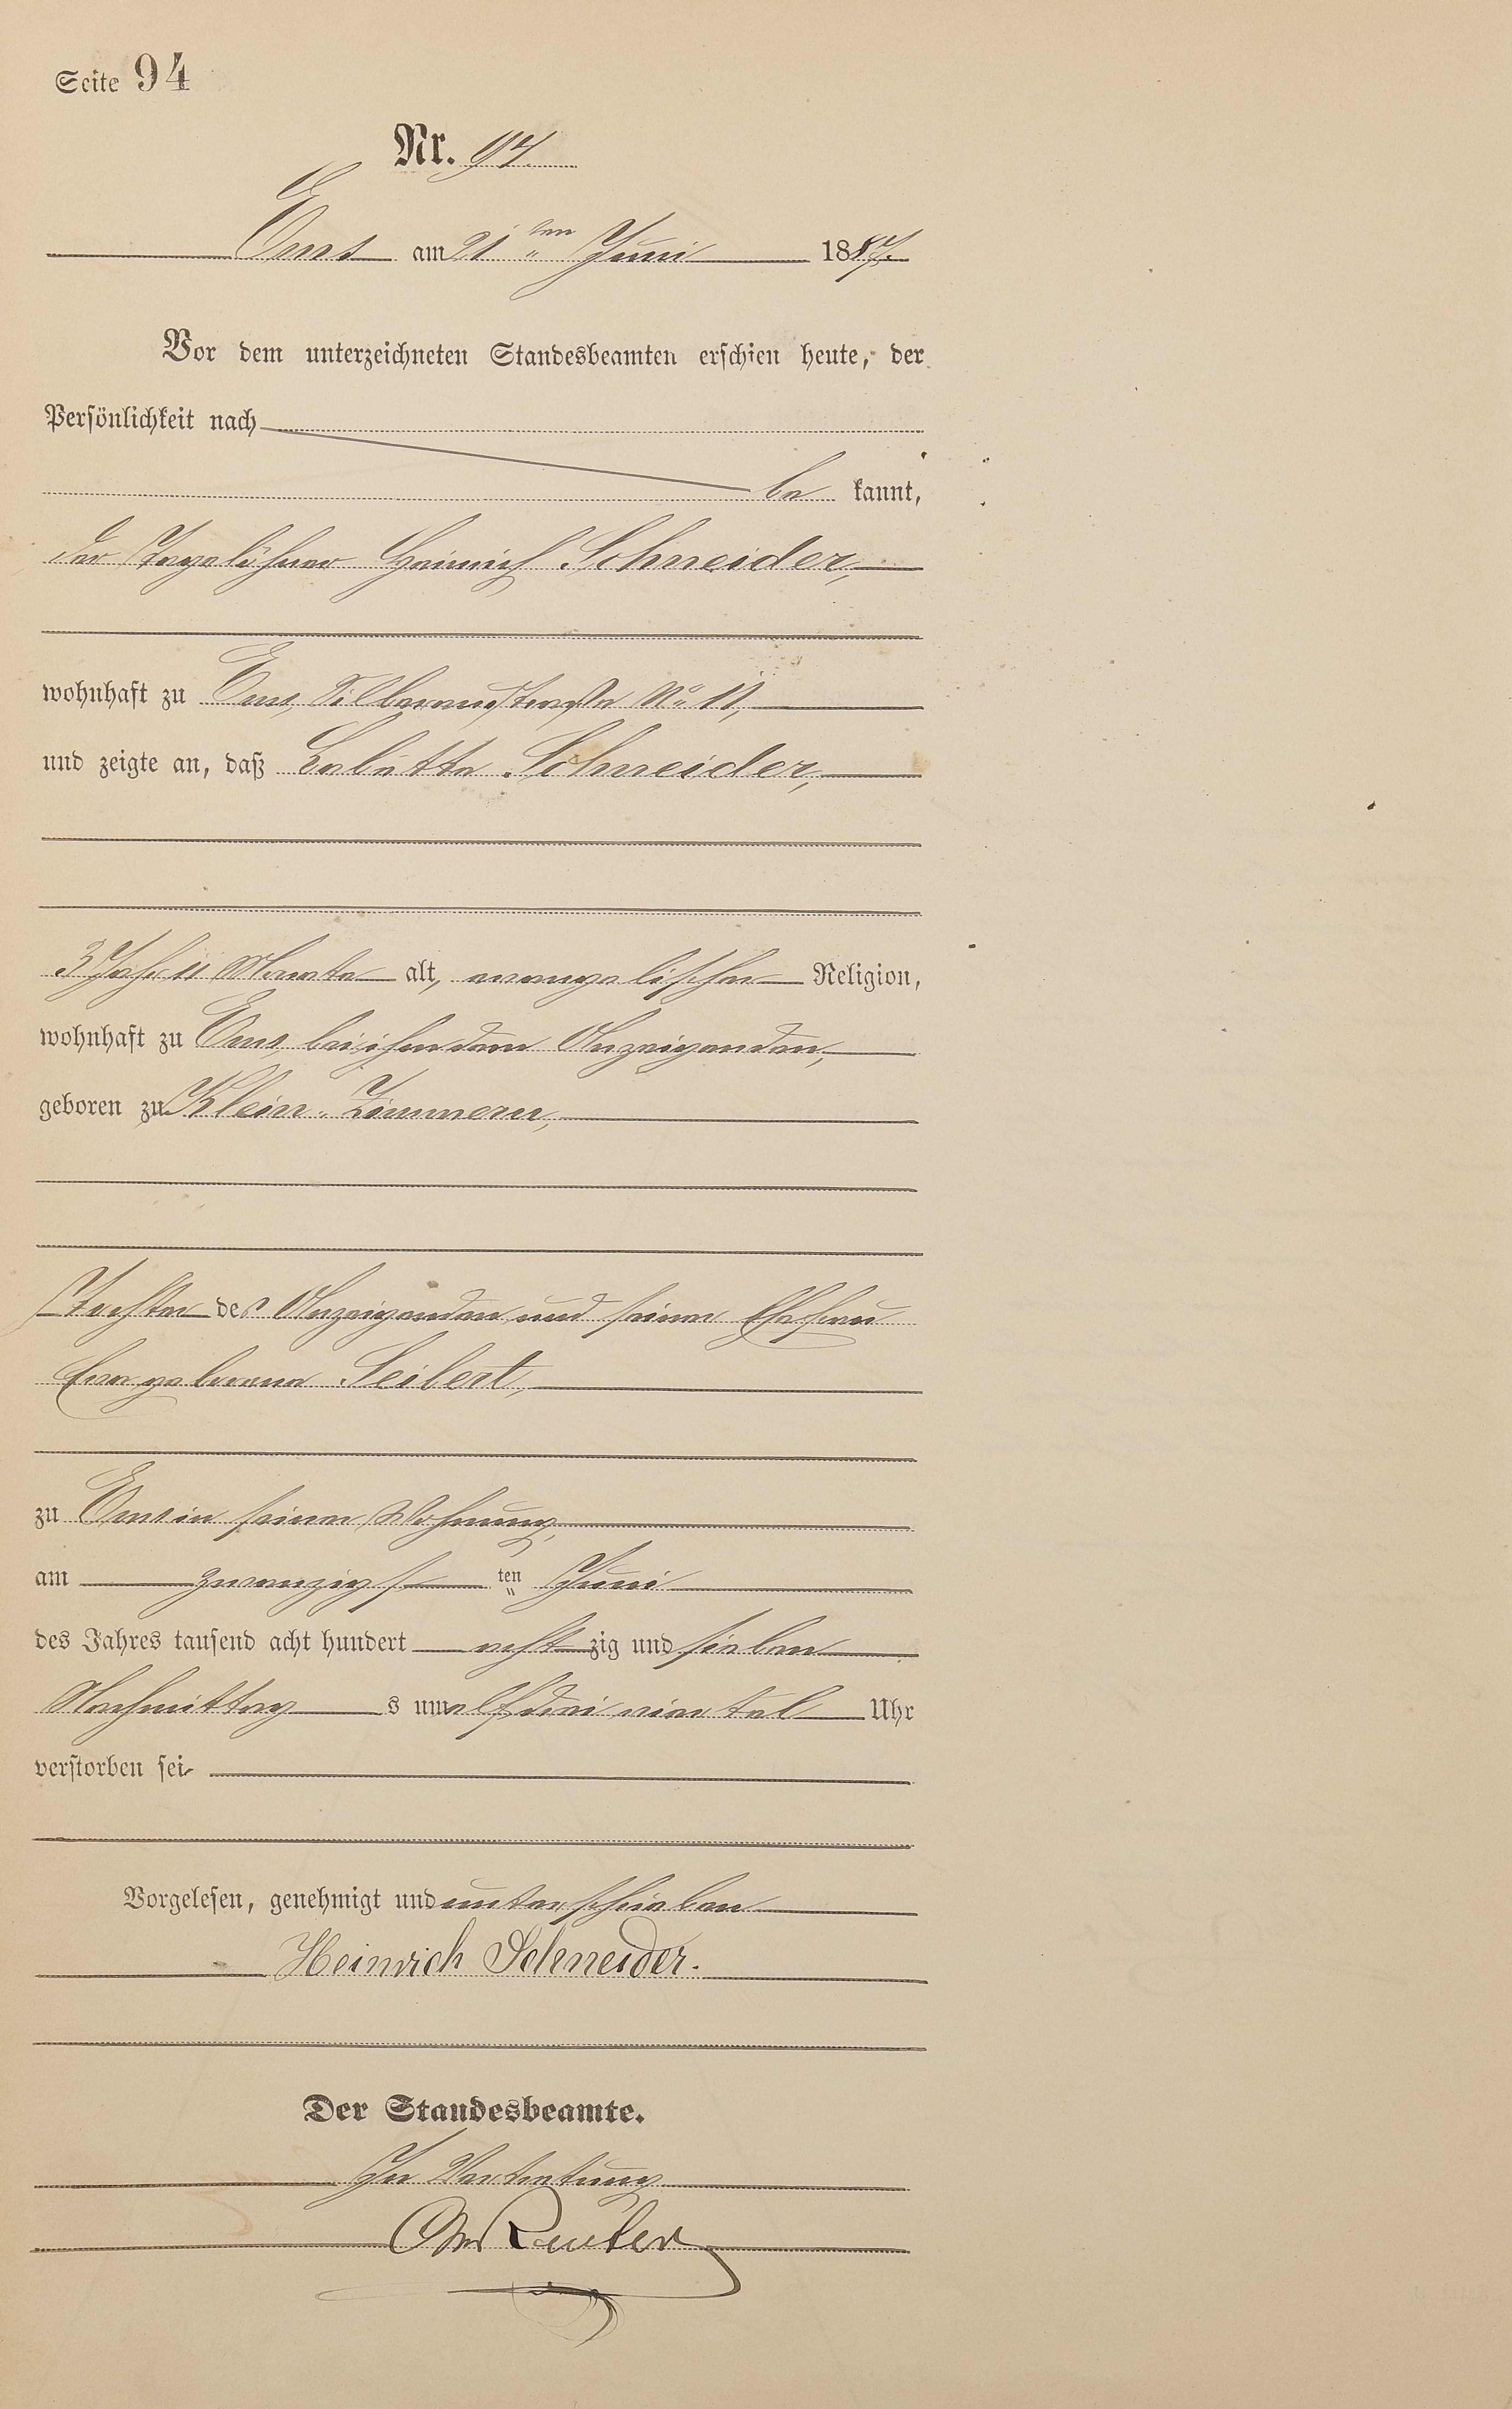 Seite 94
Nr. 94.
Ems am 21ten Juni 1887.
Vor dem unterzeichneten Standesbeamten erschien heute, der
Persönlichkeit nach
be kannt,
der Tagelöhner Heinrich Schneider,
wohnhaft zu Ems, Silberaustraße No 11,
und zeigte an, daß Babette Schneider,
3 Jahr 11 Monate alt, evangelischer Religion,
wohnhaft zu Ems, bei ihm dem Anzeigenden,
geboren zu Klein-Zimmern,
Tochter des Anzeigenden und seiner Ehefrau
Eva geborene Seibert,
zu Ems in seiner Wohnung,
am zwanzigsten Juni
des Jahres tausend acht hundert acht zig und sieben
Nachmittag s um elf drei viertel Uhr
verstorben sei
Vorgelesen, genehmigt und unterschrieben
Heinrich Schneider.
Der Standesbeamte.
In Vertretung
Reuter